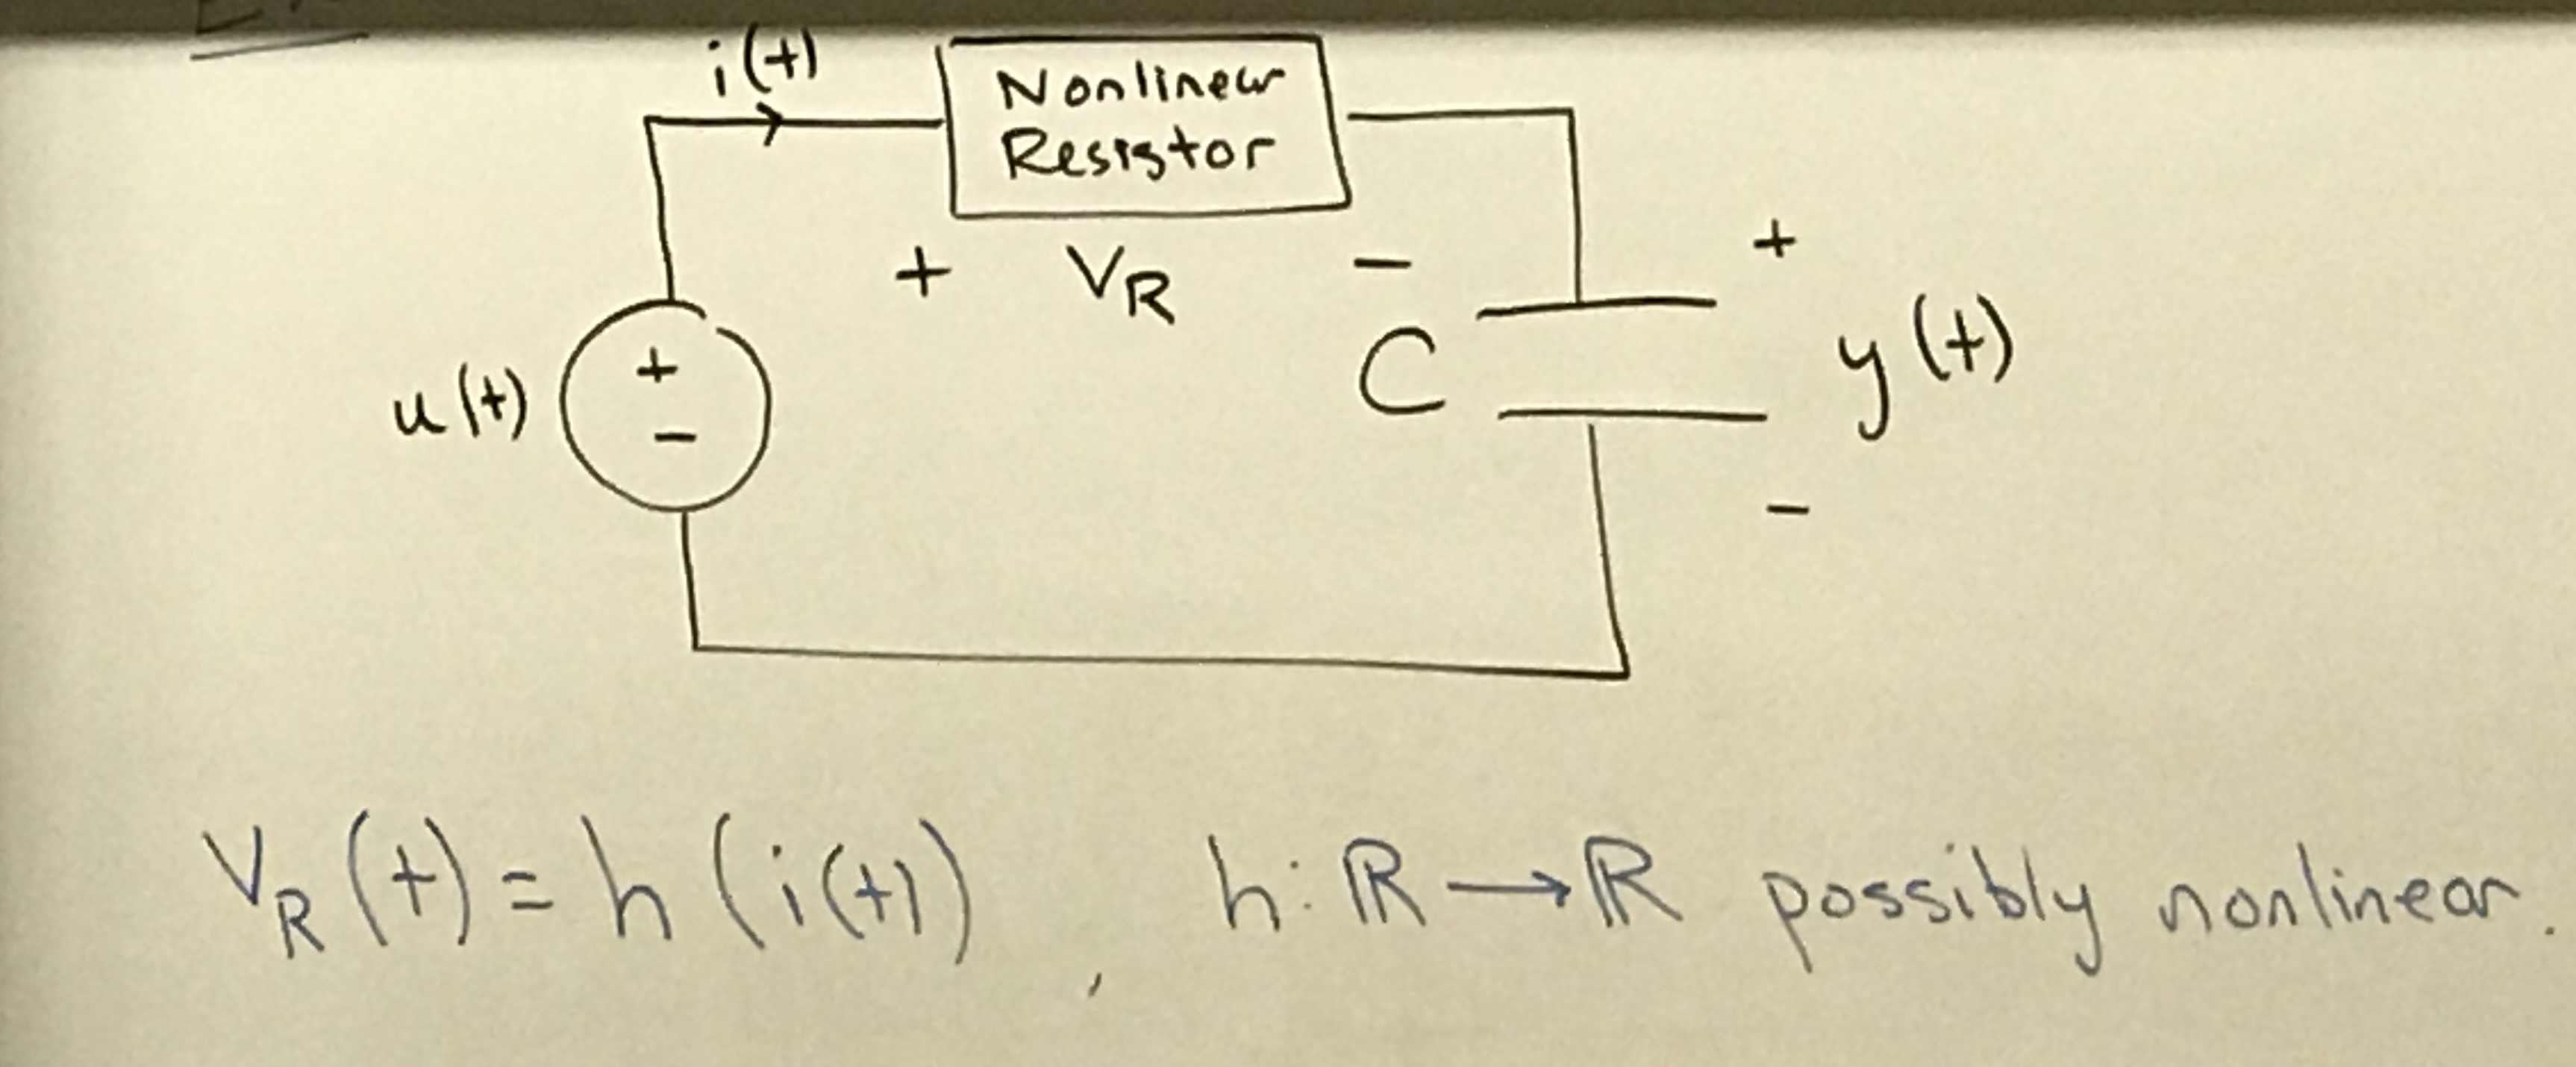 i(t)
Nonlinear
Resistor
+ V_R -
+
u(t) + -
C
y(t)
-
V_R(t) = h(i(t)) , h: ℝ → ℝ possibly nonlinear.